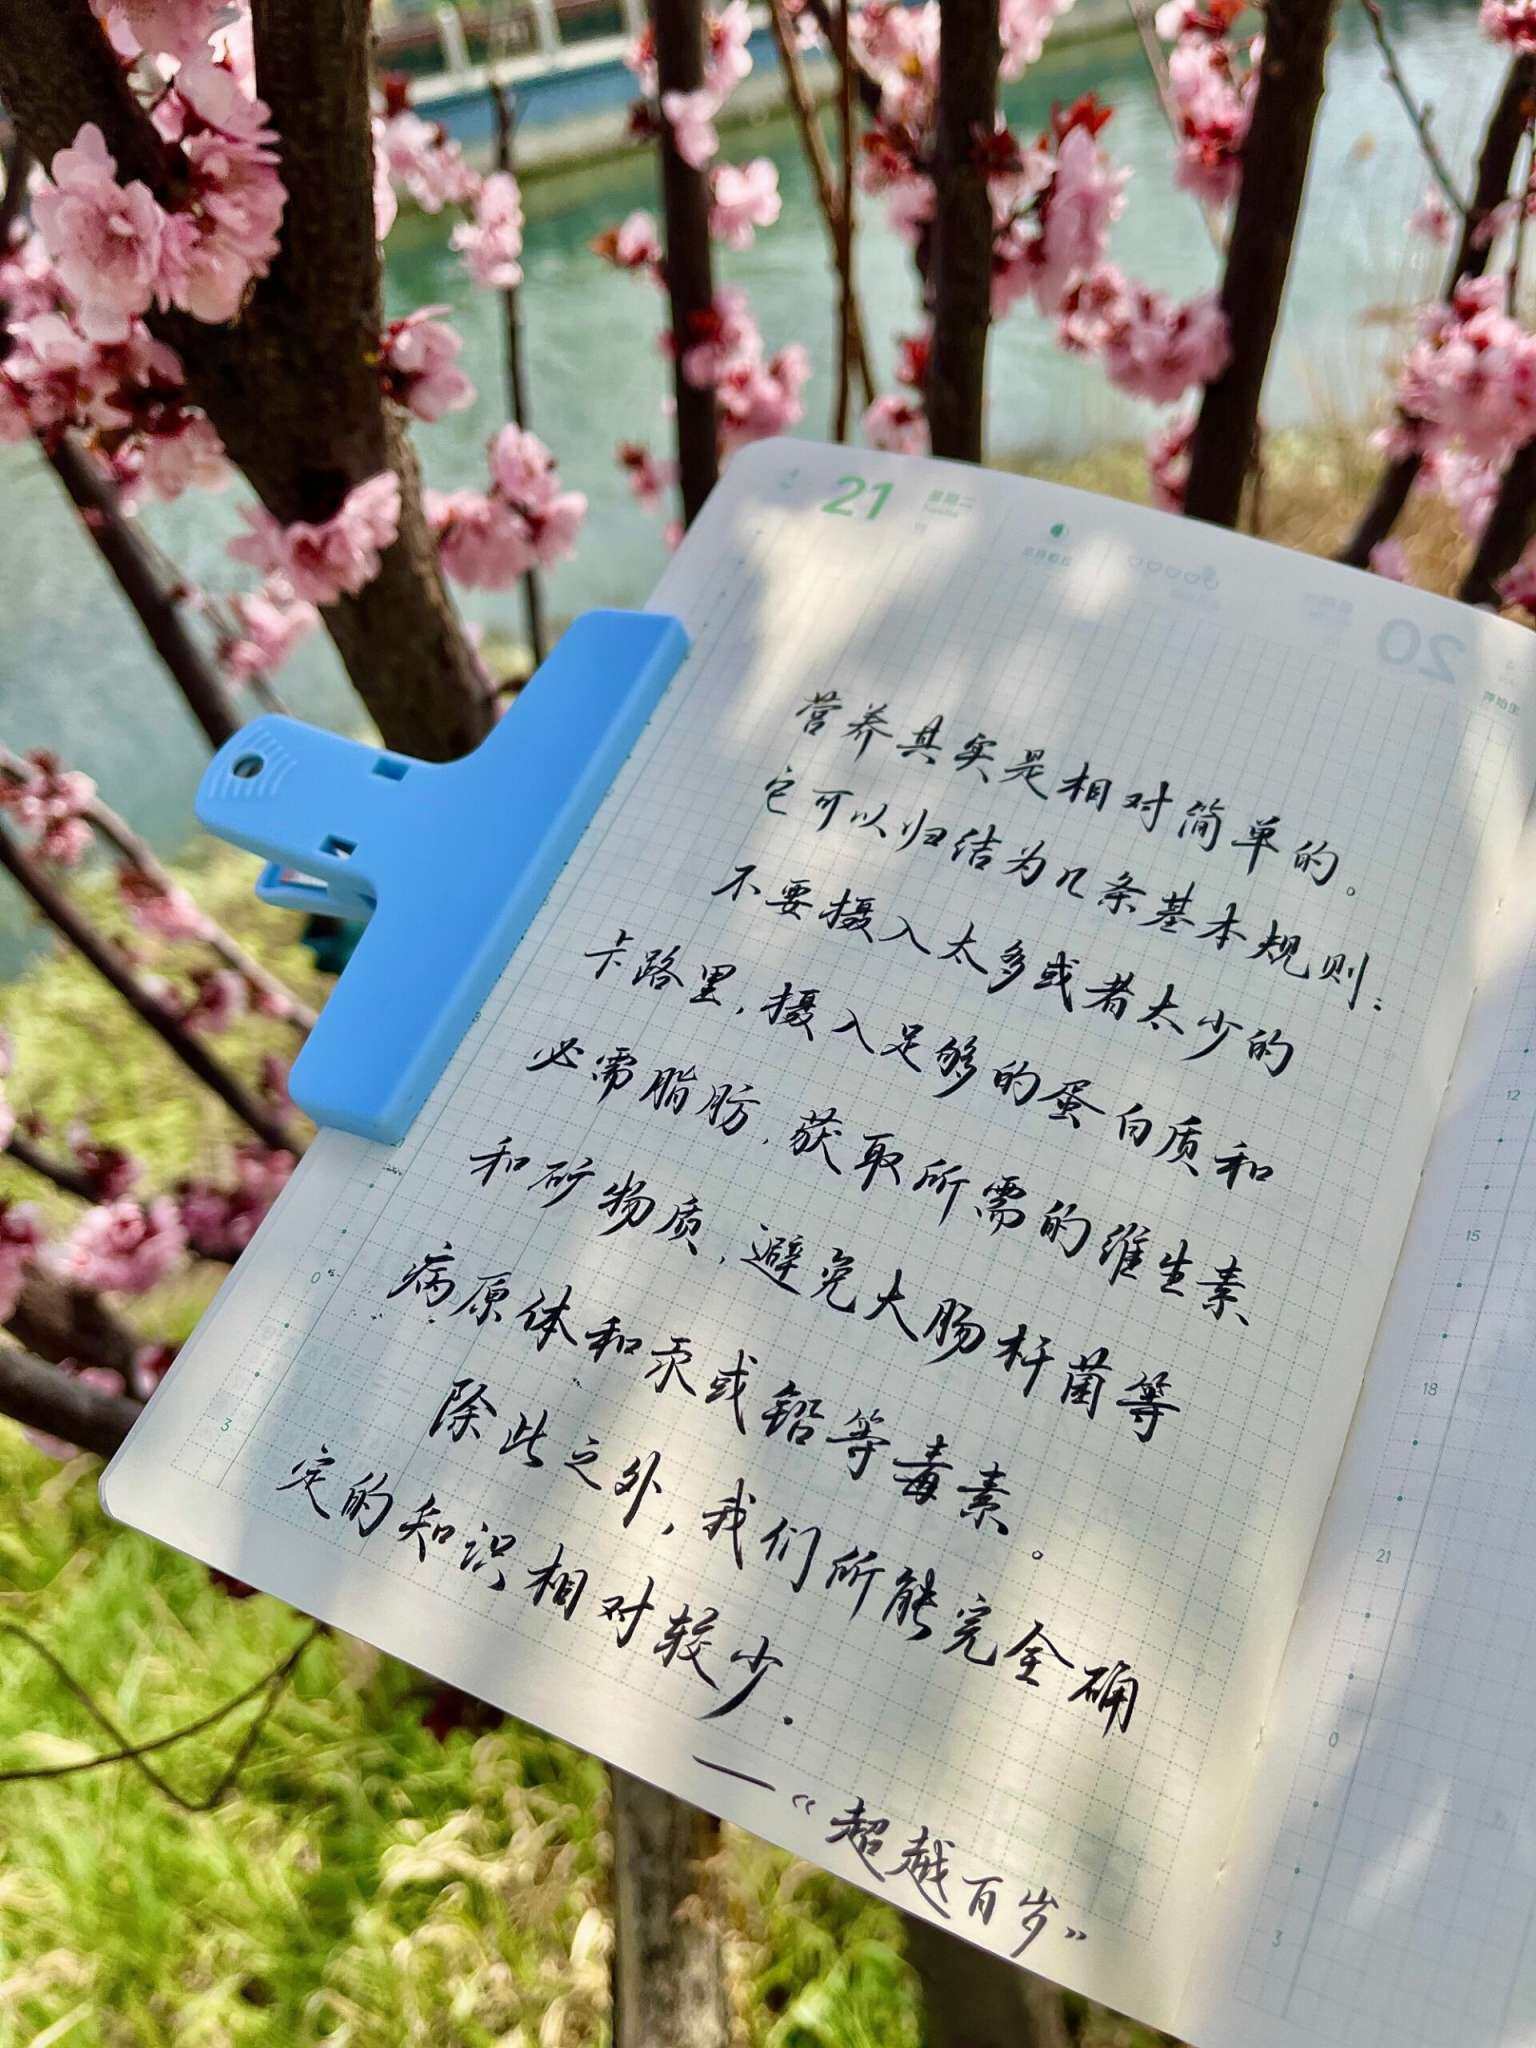 21 星期二
20
营养其实是相对简单的。
它可以归结为几条基本规则:
不要摄入太多或者太少的
卡路里,摄入足够的蛋白质和
必需脂肪,获取所需的维生素
和矿物质,避免大肠杆菌等
病原体和汞或铅等毒素。
除此之外,我们所能完全确
定的知识相对较少.
—“超越百岁”
0
3
12
15
18
21
0
3